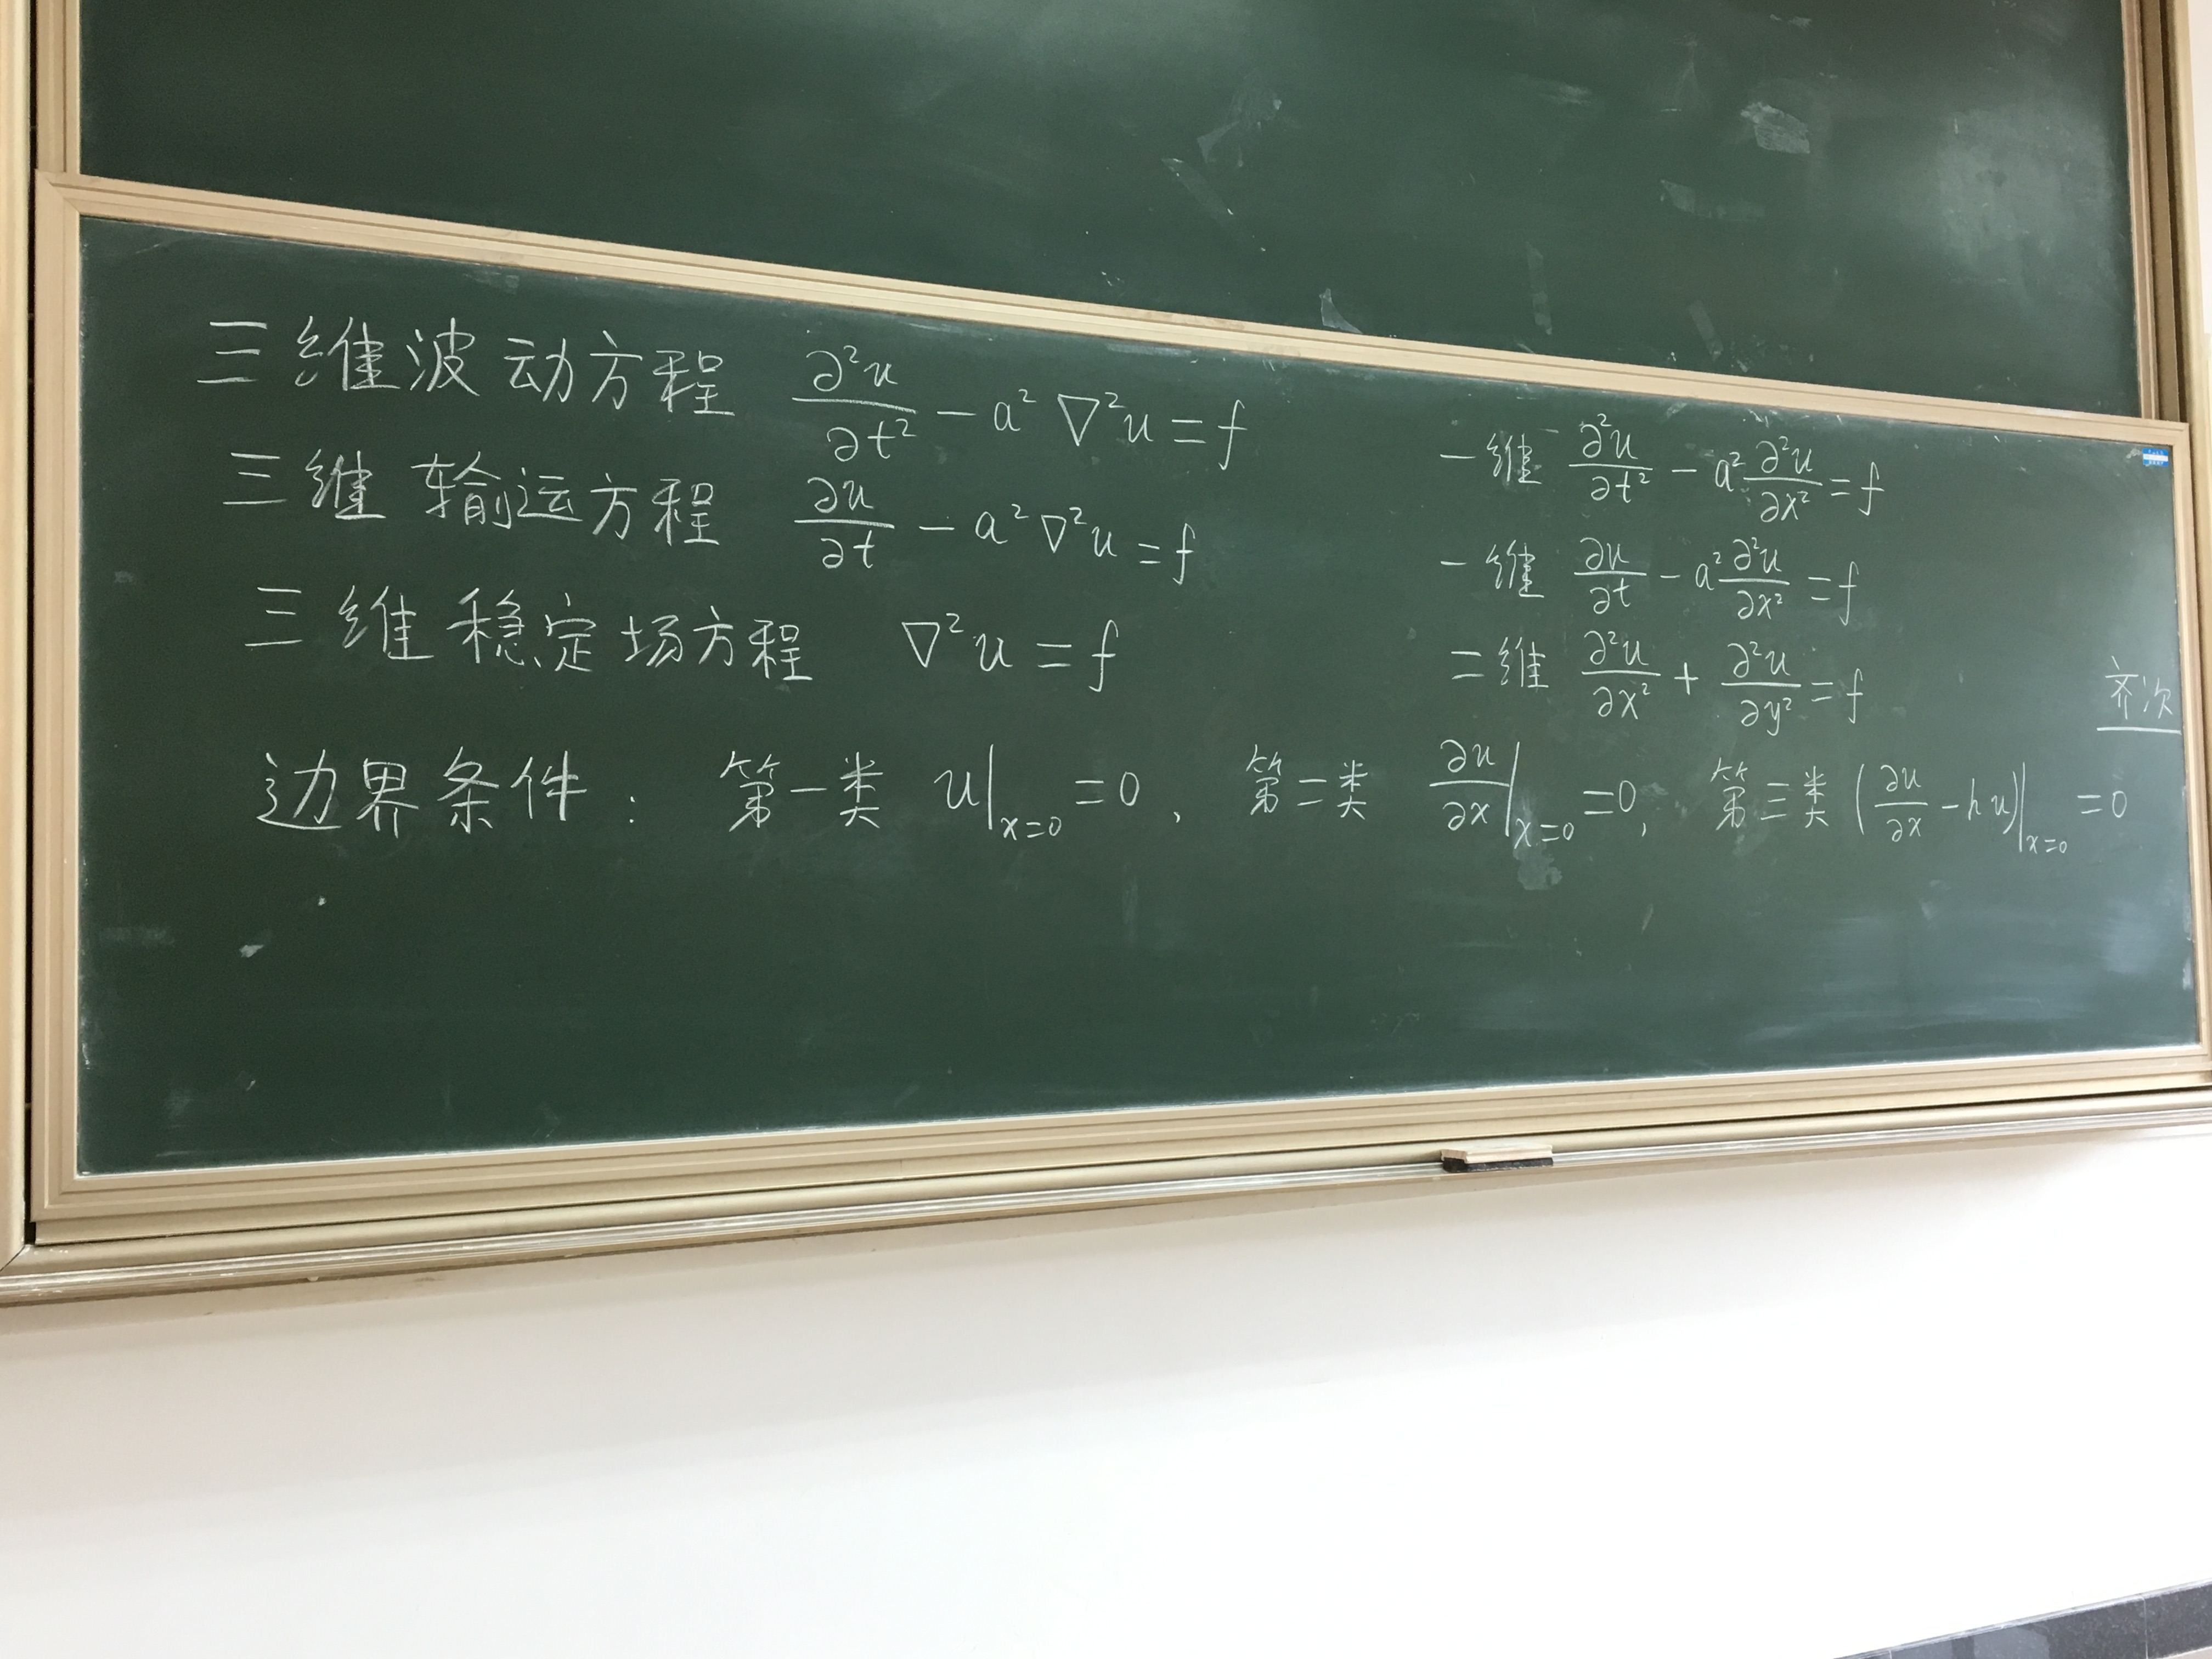 三维波动方程 ∂²u/∂t² − a² ∇²u = f
三维输运方程 ∂u/∂t − a² ∇²u = f
三维稳定场方程 ∇²u = f
一维 ∂²u/∂t² − a² ∂²u/∂x² = f
一维 ∂u/∂t − a² ∂²u/∂x² = f
二维 ∂²u/∂x² + ∂²u/∂y² = f
齐次
边界条件： 第一类 u|x=0 = 0， 第二类 ∂u/∂x|x=0 = 0， 第三类 (∂u/∂x − hu)|x=0 = 0